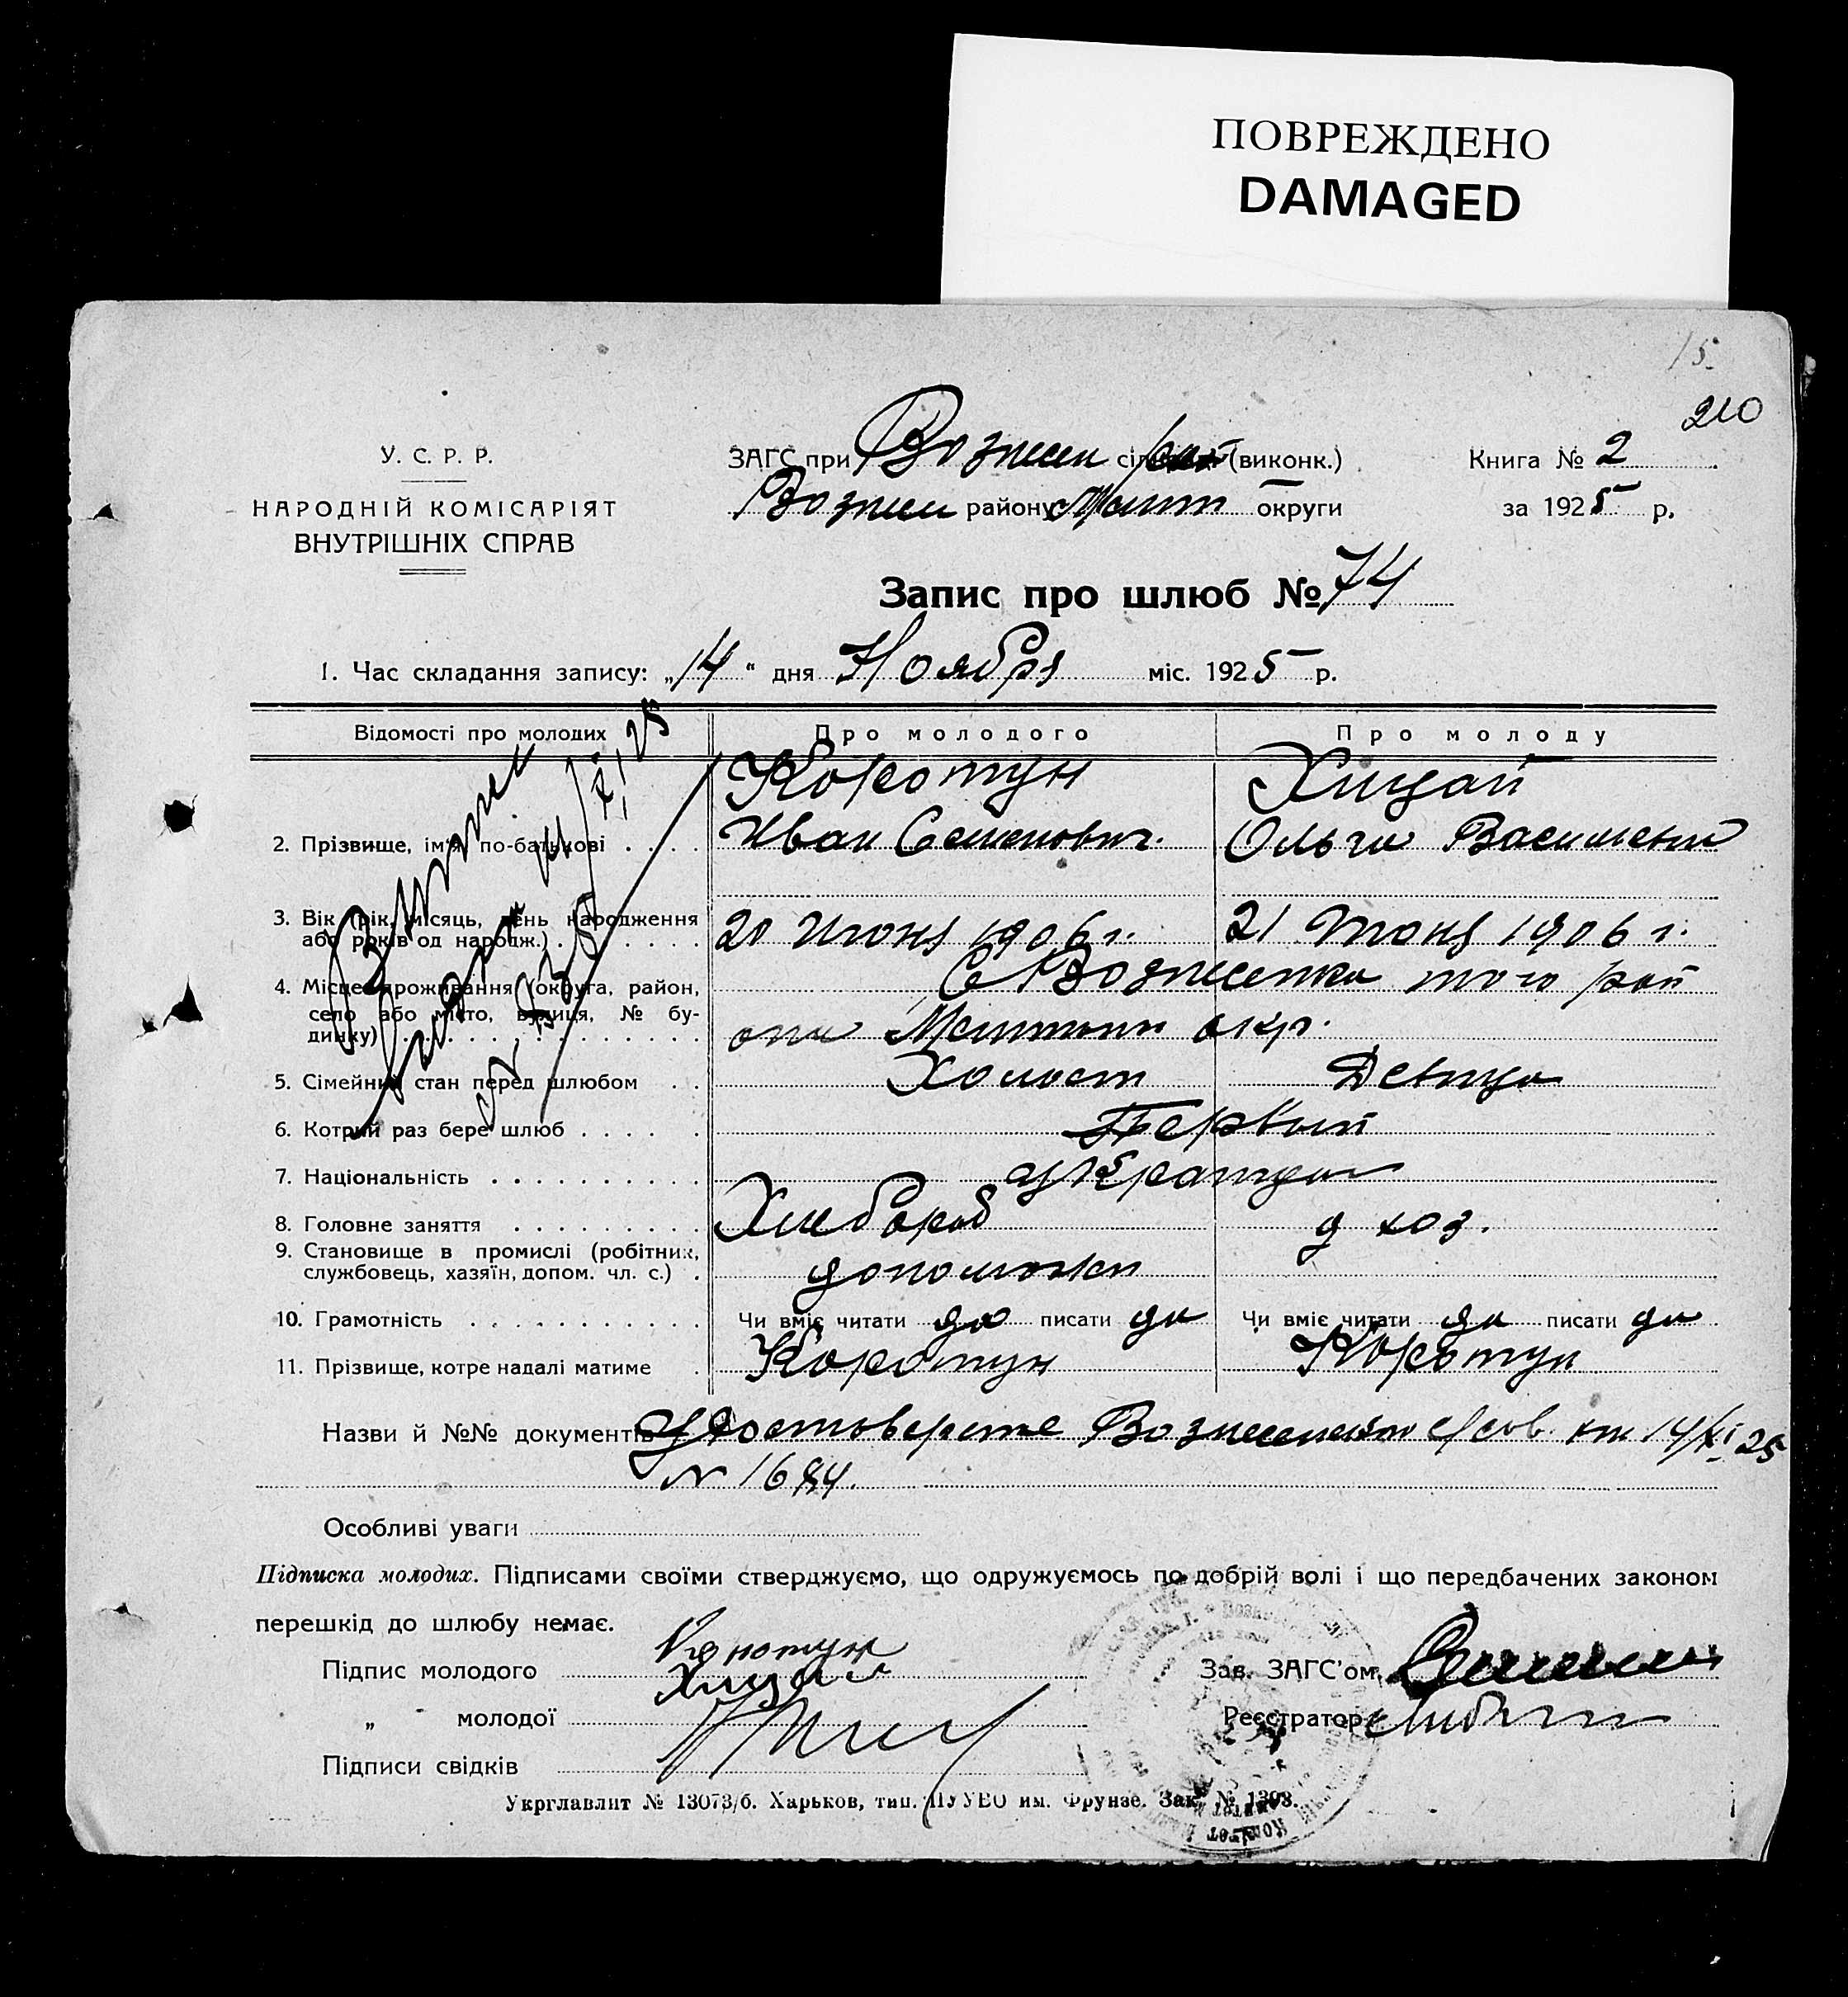 ПОВРЕЖДЕНО
DAMAGED
15
210
У. С. Р. Р.
НАРОДНІЙ КОМІСАРІЯТ
ВНУТРІШНІХ СПРАВ
ЗАГС при Вознесен рай (виконк.)
Вознесен району Меліт округи
Книга № 2
за 1925 р.
Запис про шлюб № 74
1. Час складання запису: „14“ дня Ноября міс. 1925 р.
Відомості про молодих
Про молодого
Про молоду
2. Прізвище, ім'я, по-батькові . . . .
Коротун
Иван Семенович.
Хицай
Ольга Васильевна
3. Вік (рік, місяць, день народження
або років од народж.) . . . . . . .
20 Июня 1906 г.
21 Июня 1906 г.
4. Місце проживання (округа, район,
село або місто, вулиця, № бу-
динку) . . . . . . . . . . . . . .
С Вознесенка того рай
она Мелитоп окр.
5. Сімейний стан перед шлюбом . .
Холост
Девица
6. Котрий раз бере шлюб . . . . .
Первый
7. Національність . . . . . . . . . .
украинцы
8. Головне заняття . . . . . . . . .
Хлебороб
д хоз.
9. Становище в промислі (робітник,
службовець, хазяїн, допом. чл. с.) .
10. Грамотність . . . . . . . . . . .
Чи вміє читати да писати да
Чи вміє читати да писати да
11. Прізвище, котре надалі матиме .
Коротун
Коротун
Выписка
выдана 14/XI 25
Назви й №№ документів Удостоверение Вознесенского с/сов. от 14/XI 25
N 1684.
Особливі уваги
Підписка молодих. Підписами своїми стверджуємо, що одружуємось по добрій волі і що передбачених законом
перешкід до шлюбу немає.
Підпис молодого Коротун
Хицай
„ молодої
Підписи свідків
Зав. ЗАГС'ом
Реєстратор
Укрглавлит № 13073/б. Харьков, тип. ПУ УВО им. Фрунзе. Зак. № 1393.